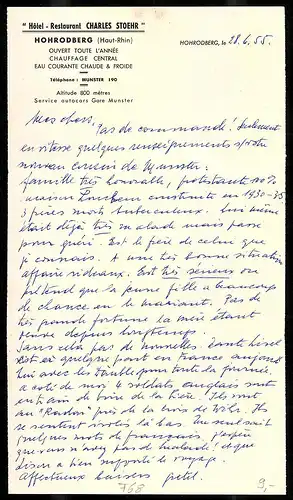 " Hôtel - Restaurant CHARLES STOEHR "
HOHRODBERG (Haut-Rhin)
OUVERT TOUTE L'ANNÉE
CHAUFFAGE CENTRAL
EAU COURANTE CHAUDE & FROIDE
Téléphone : MUNSTER 190
Altitude 800 mètres
Service autocars Gare Munster
HOHRODBERG, le 28.6.55.
Mes chers,
Pas de commande! Seulement
en vitesse quelques renseignements
nouveau cousin de Munster:
famille très honorable, protestante 100%
maison construite en 1930-35
3 frères morts tuberculeux. Lui-même
était déjà très malade mais passe
pour guéri. Est le frère de celui que
je connais. A une très bonne situation
affaire rideaux. Est très sérieux on
prétend que la jeune fille a beaucoup
de chance en le mariant. Pas de
très grande fortune la mère étant
veuve depuis longtemps.
Sans cela pas de nouvelles. Tante
est en quelque part en France
hui avec les pour toute la journée.
a côté de moi 4 soldats anglais sont
en train de boire de la bière. Ils sont
au "Radar" près de la croix de Wihr. Ils
se sentent isolés là-bas. Un seul sait
quelques mots de français. J'espère
que vous n'avez pas de malade! et que
a bien supporté le voyage.
Affectueux baisers
768
9,-